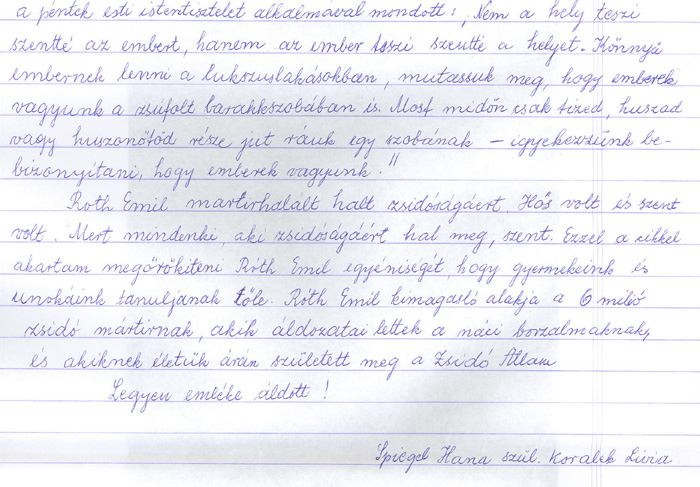 a péntek esti istentisztelet alkalmával mondott: „Nem a hely teszi
szentté az embert, hanem az ember teszi szentté a helyet. Könnyű
embernek lenni a lukszuslakásokban, mutassuk meg, hogy emberek
vagyunk a zsúfolt barakkszobában is. Most midőn csak tized, huszad
vagy huszonötöd része jut ránk egy szobának – igyekezzünk be-
bizonyítani, hogy emberek vagyunk!"
Roth Emil martirhalált halt zsidóságáért. Hős volt és szent
volt. Mert mindenki, aki zsidóságáért hal meg, szent. Ezzel a cikkel
akartam megörökíteni Róth Emil egyéniségét, hogy gyermekeink és
unokáink tanuljanak tőle. Róth Emil kimagasló alakja a 6 milió
zsidó mártirnak, akik áldozatai lettek a náci borzalmaknak,
és akiknek életük árán született meg a Zsidó Állam
Legyen emléke áldott!
Spiegel Hana szül. Koralek Livia